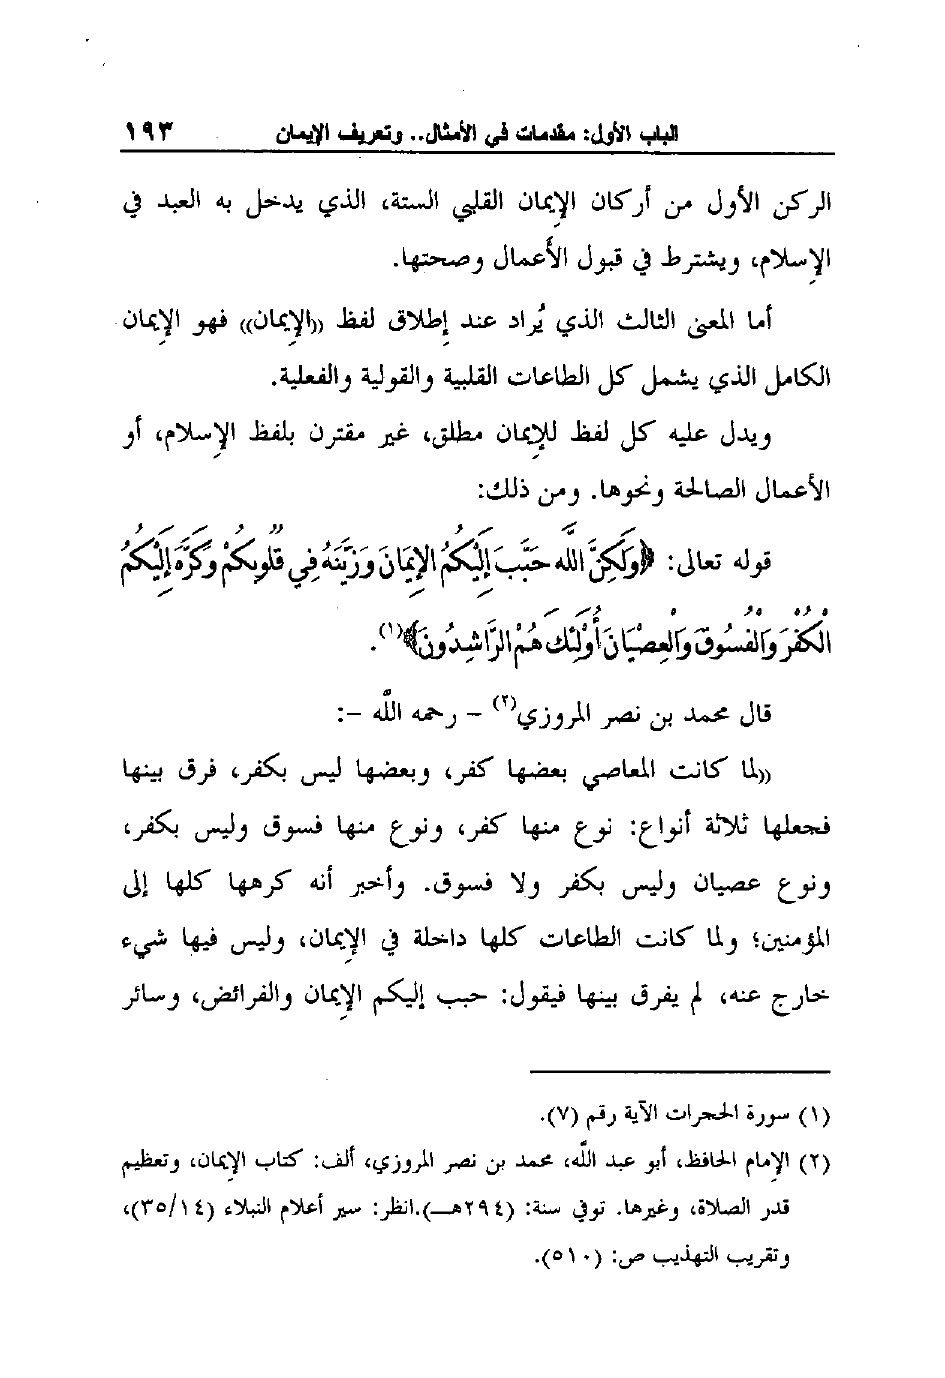 الباب الأول: مقدمات في الأمثال.. وتعريف الإيمان ١٩٣
الركن الأول من أركان الإيمان القلبي الستة، الذي يدخل به العبد في
الإسلام، ويشترط في قبول الأعمال وصحتها.
أما المعنى الثالث الذي يُراد عند إطلاق لفظ ((الإيمان)) فهو الإيمان
الكامل الذي يشمل كل الطاعات القلبية والقولية والفعلية.
ويدل عليه كل لفظ للإيمان مطلق، غير مقترن بلفظ الإسلام، أو
الأعمال الصالحة ونحوها. ومن ذلك:
قوله تعالى: ﴿وَلَكِنَّ اللَّه حَبَّبَ إِلَيْكُمُ الإِيمَانَ وَزَيَّنَهُ فِي قُلُوبِكُمْ وَكَرَّهَ إِلَيْكُمُ
الْكُفْرَ وَالْفُسُوقَ وَالْعِصْيَانَ أُوْلَئِكَ هُمُ الرَّاشِدُونَ﴾(١).
قال محمد بن نصر المروزي(٢) – رحمه اللَّه –:
((لما كانت المعاصي بعضها كفر، وبعضها ليس بكفر، فرق بينها
فجعلها ثلاثة أنواع: نوع منها كفر، ونوع منها فسوق وليس بكفر،
ونوع عصيان وليس بكفر ولا فسوق. وأخبر أنه كرهها كلها إلى
المؤمنين؛ ولما كانت الطاعات كلها داخلة في الإيمان، وليس فيها شيء
خارج عنه، لم يفرق بينها فيقول: حبب إليكم الإيمان والفرائض، وسائر
(١) سورة الحجرات الآية رقم (٧).
(٢) الإمام الحافظ، أبو عبد اللَّه، محمد بن نصر المروزي، ألف: كتاب الإيمان، وتعظيم
قدر الصلاة، وغيرها. توفي سنة: (٢٩٤هــ).انظر: سير أعلام النبلاء (٣٥/١٤)،
وتقريب التهذيب ص: (٥١٠).